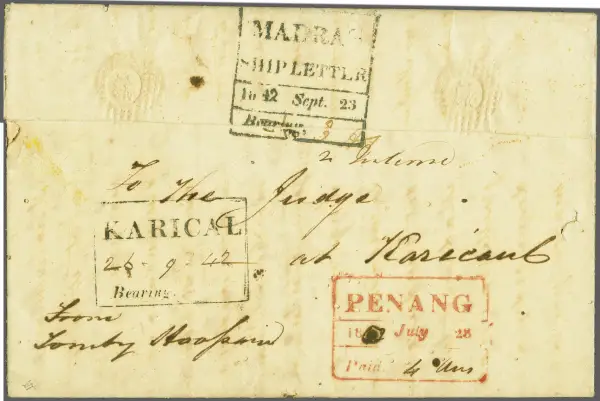 MADRAS
SHIP LETTER
1842 Sept. 23
Bearing
To the Judge
at Karicaul
KARICAL
26 - 9 - 42
Bearing.
From
Tomby
PENANG
18 2 July 28
Paid. 4 Ans